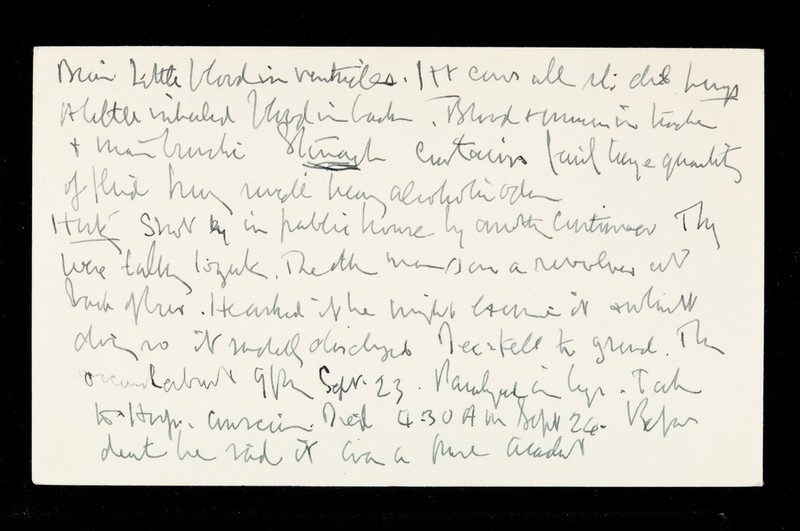 Brain Little blood in ventricles. Heart cavs all sl. dil. Lungs
A little inhaled blood in back. Blood & mucus in trachea
& main bronchi Stomach contains fairly large quantity
of fluid having smell heavy alcoholic odour
Hist Shot in public house by another customer They
were talking together. The other man saw a revolver at
back of bar. He asked if he might examine it & whilst
doing so it suddenly discharged Deceased fell to ground. This
occurred about 9 PM Sept. 23. Paralysed in legs. Taken
to Hosp. conscious. Died 4.30 AM Sept 24. Before
death he said it was a pure accident